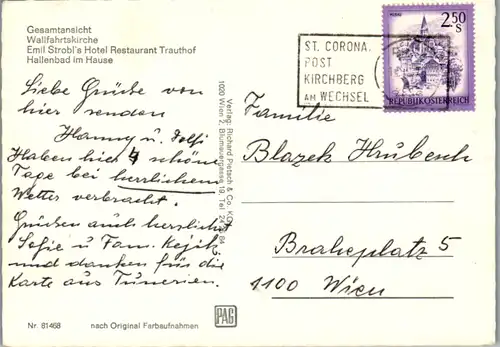 Gesamtansicht
Wallfahrtskirche
Emil Strobl's Hotel Restaurant Trauthof
Hallenbad im Hause
Liebe Grüße von
hier senden
Hanny u. Dolfi
Haben hier 4 schöne
Tage bei herrlichem
Wetter verbracht.
Grüßen auch herzlichst
Sofie u. Fam. Kejik,
und danken für die
Karte aus Tunesien.
Nr. 81468
nach Original Farbaufnahmen
Verlag: Richard Pietsch & Co. KG,
1020 Wien 2, Blumauergasse 19, Tel. 24
PAG
ST. CORONA.
POST
KIRCHBERG
AM WECHSEL
2.50
S
REPUBLIK ÖSTERREICH
Familie
Blazek Hrubesch
Braheplatz 5
1100 Wien